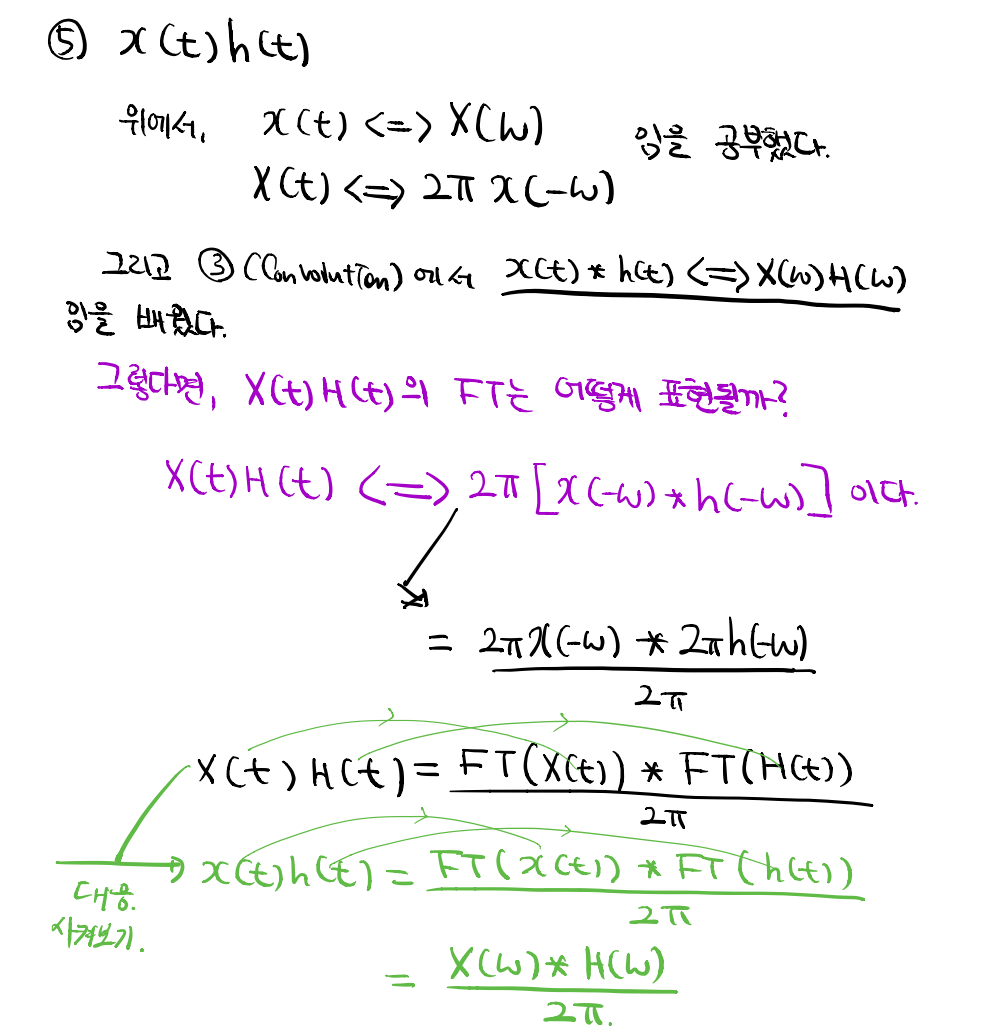 ⑤ x(t)h(t)
위에서, x(t) <=> X(ω) 임을 공부했다.
X(t) <=> 2π x(-ω)
그리고 ③ (Convolution) 에서 x(t) * h(t) <=> X(ω)H(ω)
임을 배웠다.
그렇다면, X(t)H(t)의 FT는 어떻게 표현될까?
X(t)H(t) <=> 2π[x(-ω) * h(-ω)] 이다.
= 2πx(-ω) * 2πh(-ω)
2π
X(t) H(t) = FT(X(t)) * FT(H(t))
2π
x(t)h(t) = FT(x(t)) * FT(h(t))
2π
대응.
시켜보기.
= X(ω) * H(ω)
2π.